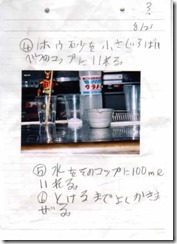 8/21
④ほう砂を小さじ3ばい
べつのコップに入れる。
⑤水をそのコップに100ml
入れる。
⑥とけるまでよくかきま
ぜる。